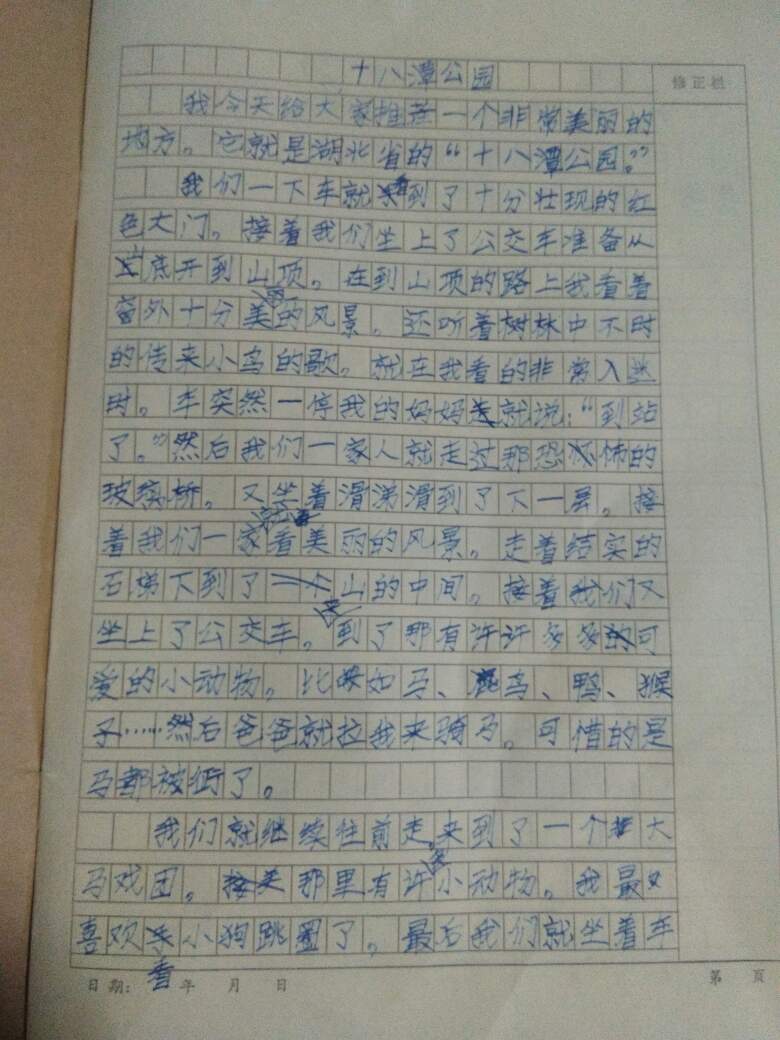 十八潭公园
修正栏
我今天给大家推荐一个非常美丽的
地方。它就是湖北省的“十八潭公园。”
我们一下车就看到了十分壮现的红
色大门。接着我们坐上了公交车准备从
山底开到山顶。在到山顶的路上我看着
窗外十分美丽的风景。还听着树林中不时
的传来小鸟的歌。就在我看的非常入迷
时。车突然一停我的妈妈就说：“到站
了。”然后我们一家人就走过那恐怖的
玻璃桥。又坐着滑涕滑到了下一层。接
着我们一家看美丽的风景。走着结实的
石梯下到了山的中间。接着我们又
坐上了公交车。到了那有许许多多可
爱的小动物。比如马、鸟、鸭、猴
子……然后爸爸就拉我来骑马。可惜的是
马都被绑了。
我们就继续往前走来到了一个大
马戏团。那里有许多小动物。我最
喜欢看小狗跳圈了。最后我们就坐着车
日期： 年 月 日
第 页